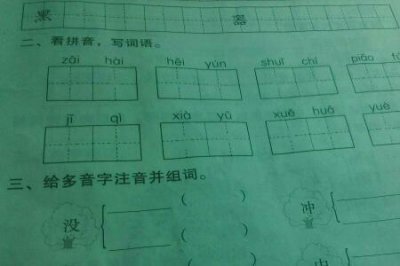 黑 器
二、看拼音,写词语。
zāi hài hēi yún shuǐ chí piāo
jī qì xià yǔ xuě huā
三、给多音字注音并组词。
( )
没 冲
( )